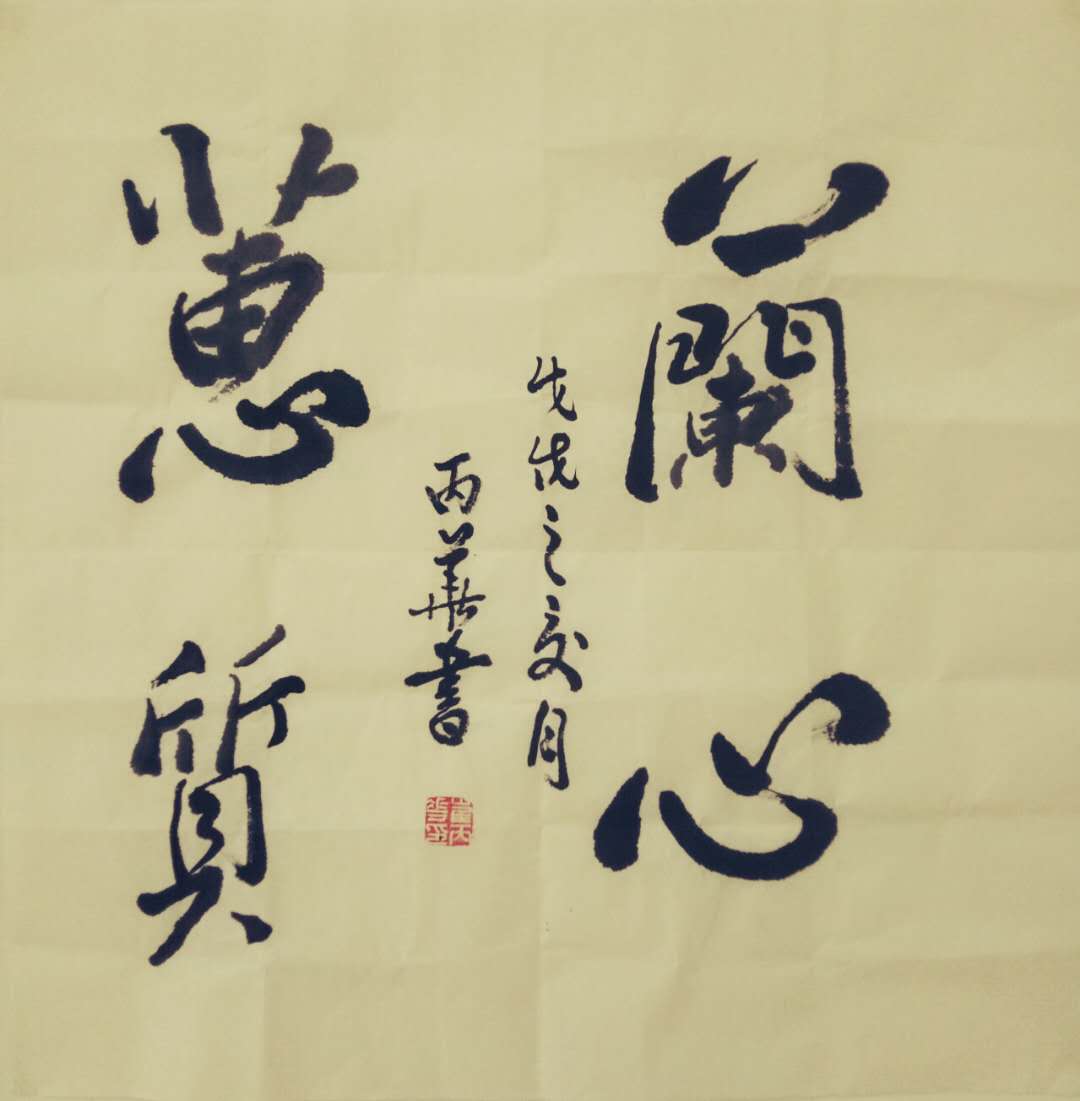 蘭心
蕙質
戊戌之夏月
丙華書